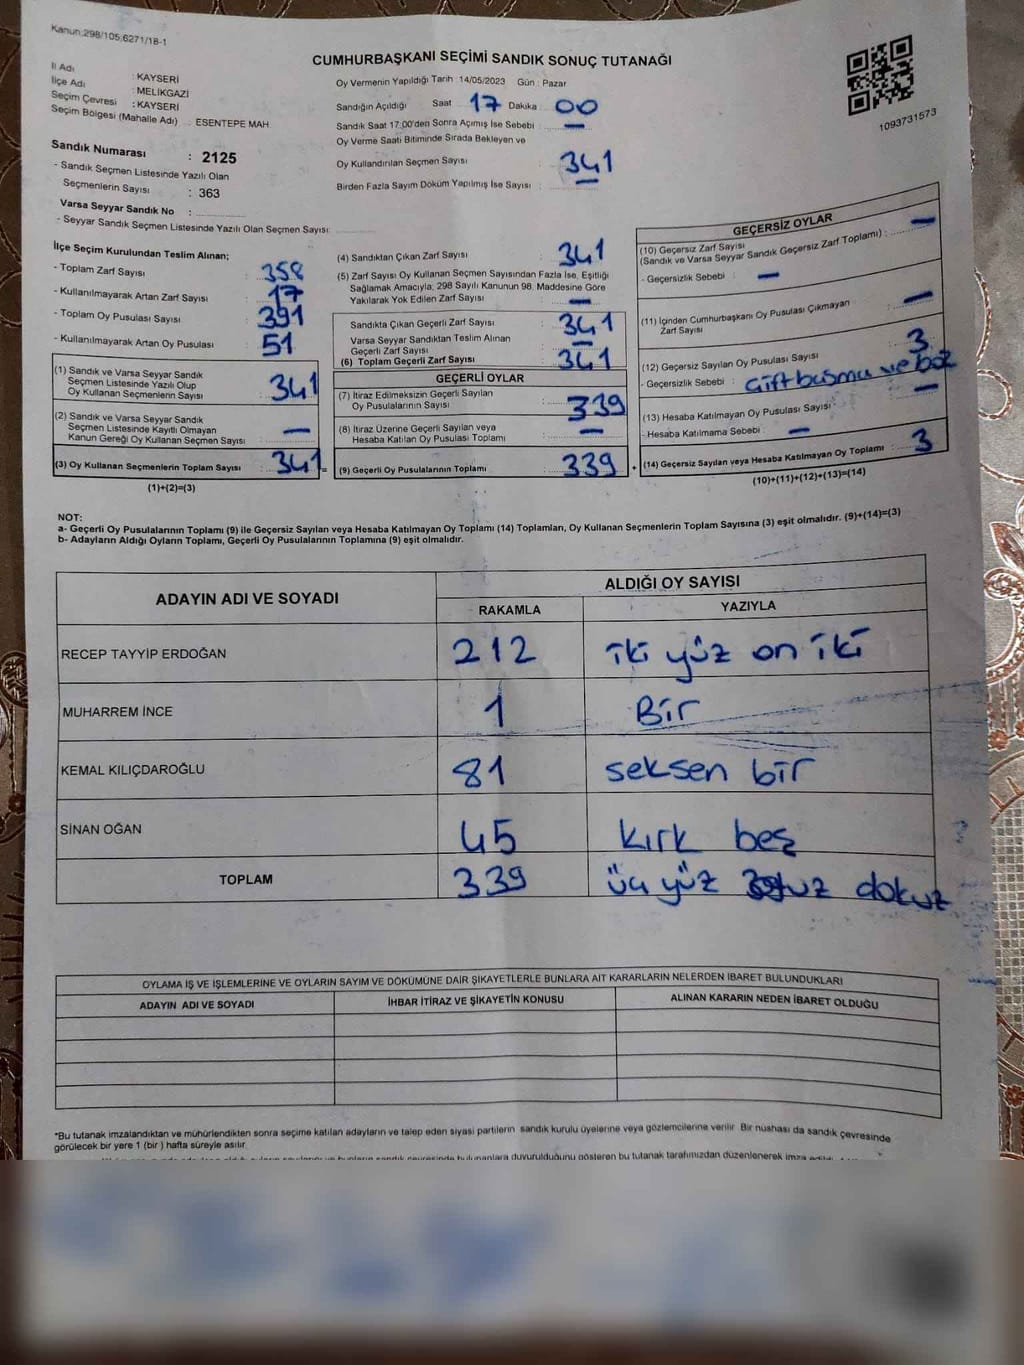 Kanun:298/105,6271/18-1
CUMHURBAŞKANI SEÇİMİ SANDIK SONUÇ TUTANAĞI
İl Adı : KAYSERİ
İlçe Adı : MELİKGAZİ
Seçim Çevresi : KAYSERİ
Seçim Bölgesi (Mahalle Adı) : ESENTEPE MAH.
Sandık Numarası : 2125
- Sandık Seçmen Listesinde Yazılı Olan
Seçmenlerin Sayısı : 363
Varsa Seyyar Sandık No :
- Seyyar Sandık Seçmen Listesinde Yazılı Olan Seçmen Sayısı:
Oy Vermenin Yapıldığı Tarih : 14/05/2023 Gün : Pazar
Sandığın Açıldığı Saat 17 Dakika 00
Sandık Saat 17:00'den Sonra Açımış İse Sebebi : —
Oy Verme Saati Bitiminde Sırada Bekleyen ve
Oy Kullandırılan Seçmen Sayısı : 341
Birden Fazla Sayım Döküm Yapılmış İse Sayısı : —
1093731573
İlçe Seçim Kurulundan Teslim Alınan;
- Toplam Zarf Sayısı : 358
- Kullanılmayarak Artan Zarf Sayısı : 17
- Toplam Oy Pusulası Sayısı : 391
- Kullanılmayarak Artan Oy Pusulası : 51
(1) Sandık ve Varsa Seyyar Sandık
Seçmen Listesinde Yazılı Olup
Oy Kullanan Seçmenlerin Sayısı : 341
(2) Sandık ve Varsa Seyyar Sandık
Seçmen Listesinde Kayıtlı Olmayan
Kanun Gereği Oy Kullanan Seçmen Sayısı : —
(3) Oy Kullanan Seçmenlerin Toplam Sayısı : 341 =
(1)+(2)=(3)
(4) Sandıktan Çıkan Zarf Sayısı : 341
(5) Zarf Sayısı Oy Kullanan Seçmen Sayısından Fazla İse, Eşitliği
Sağlamak Amacıyla, 298 Sayılı Kanunun 98. Maddesine Göre
Yakılarak Yok Edilen Zarf Sayısı : —
Sandıkta Çıkan Geçerli Zarf Sayısı : 341
Varsa Seyyar Sandıktan Teslim Alınan
Geçerli Zarf Sayısı : —
(6) Toplam Geçerli Zarf Sayısı : 341
GEÇERLİ OYLAR
(7) İtiraz Edilmeksizin Geçerli Sayılan
Oy Pusulalarının Sayısı : 339
(8) İtiraz Üzerine Geçerli Sayılan veya
Hesaba Katılan Oy Pusulası Toplamı : —
(9) Geçerli Oy Pusulalarının Toplamı : 339 +
GEÇERSİZ OYLAR
(10) Geçersiz Zarf Sayısı
(Sandık ve Varsa Seyyar Sandık Geçersiz Zarf Toplamı) : —
- Geçersizlik Sebebi : —
(11) İçinden Cumhurbaşkanı Oy Pusulası Çıkmayan
Zarf Sayısı : —
(12) Geçersiz Sayılan Oy Pusulası Sayısı : 3
- Geçersizlik Sebebi : Çift basma ve boş
(13) Hesaba Katılmayan Oy Pusulası Sayısı : —
- Hesaba Katılmama Sebebi : —
(14) Geçersiz Sayılan veya Hesaba Katılmayan Oy Toplamı : 3
(10)+(11)+(12)+(13)=(14)
NOT:
a- Geçerli Oy Pusulalarının Toplamı (9) ile Geçersiz Sayılan veya Hesaba Katılmayan Oy Toplamı (14) Toplamları, Oy Kullanan Seçmenlerin Toplam Sayısına (3) eşit olmalıdır. (9)+(14)=(3)
b- Adayların Aldığı Oyların Toplamı, Geçerli Oy Pusulalarının Toplamına (9) eşit olmalıdır.
ADAYIN ADI VE SOYADI
ALDIĞI OY SAYISI
RAKAMLA YAZIYLA
RECEP TAYYİP ERDOĞAN 212 iki yüz on iki
MUHARREM İNCE 1 Bir
KEMAL KILIÇDAROĞLU 81 seksen bir
SİNAN OĞAN 45 kırk beş
TOPLAM 339 üç yüz otuz dokuz
OYLAMA İŞ VE İŞLEMLERİNE VE OYLARIN SAYIM VE DÖKÜMÜNE DAİR ŞİKAYETLERLE BUNLARA AİT KARARLARIN NELERDEN İBARET BULUNDUKLARI
ADAYIN ADI VE SOYADI İHBAR İTİRAZ VE ŞİKAYETİN KONUSU ALINAN KARARIN NEDEN İBARET OLDUĞU
*Bu tutanak imzalandıktan ve mühürlendikten sonra seçime katılan adayların ve talep eden siyasi partilerin sandık kurulu üyelerine veya gözlemcilerine verilir. Bir nüshası da sandık çevresinde
görülecek bir yere 1 (bir ) hafta süreyle asılır.
bulunanlara duyurulduğunu gösteren bu tutanak tarafımızdan düzenlenerek imza edildi.